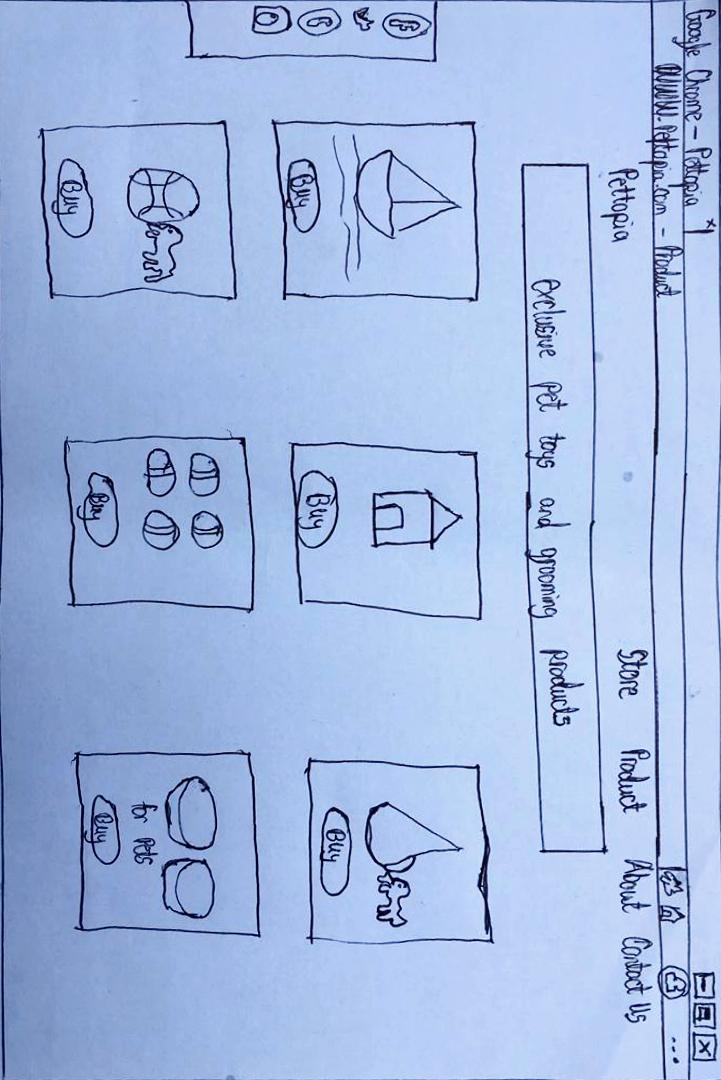 Google Chrome - Pettopia x
WWW.Pettopia.com - Product
Pettopia Store Product About Contact Us
exclusive pet toys and grooming products
f
Buy Buy Buy
for Pets
Buy Buy Buy